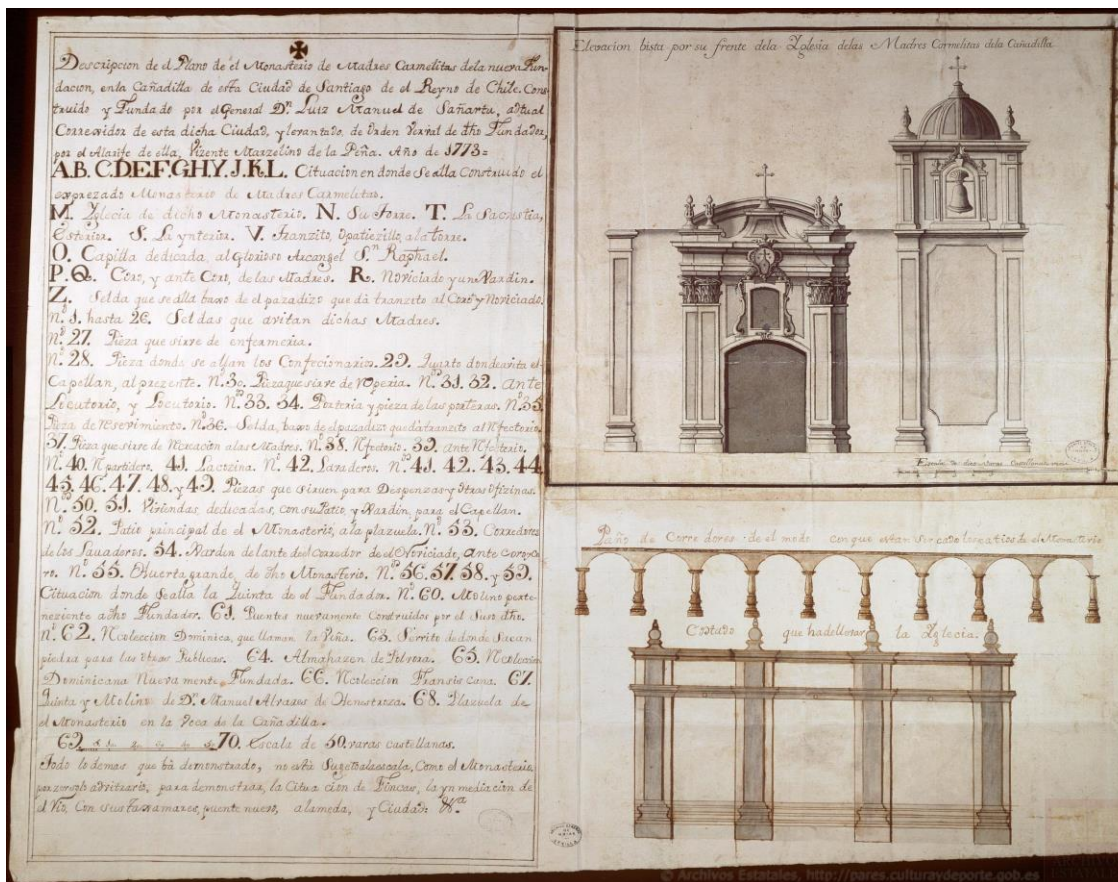 Descripcion de el Plano de el Monasterio de Madres Carmelitas de la nueva Fun-
dacion, enla Cañadilla de esta Ciudad de Santiago de el Reyno de Chile. Cons-
truido y Fundado por el General Dn. Luiz Manuel de Sañartu, actual
Correxidor de esta dicha Ciudad, y levantado, de orden Verval de dho Fundador,
por el Alarife de ella, Vizente Marzelino de la Peña. Año de 1773=
A.B.C.D.E.F.G.H.Y.J.K.L. Cituacion en donde Se alla Construido el
exprezado Monasterio de Madres Carmelitas.
M. Yglecia de dicho Monasterio. N. Su Torre. T. La Sacristia,
Esterior. S. La ynterior. V. Tranzito, o patiezillo, a la torre.
O. Capilla dedicada, al Glorioso Arcangel Sn. Raphael.
P.Q. Coro, y ante Coro, de las Madres. R. Noviciado y un Xardin.
Z. Selda que se alla baxo de el pazadizo que dà tranzito al Coro y Noviciado.
n.º 1. hasta 26. Seldas que avitan dichas Madres.
n.º 27. Pieza que sirve de enfermeria.
n.º 28. Pieza donde se allan los Confecionarios. 29. Quarto donde avita el
Capellan, al prezente. N.º 30. Pieza que sirve de Roperia. N.º 31. 32. Ante
Locutorio, y Locutorio. N.º 33. 34. Porteria y pieza de las porteras. N.º 35.
Pieza de resevimiento. N.º 36. Selda, baxo de el pazadizo que dà tranzito al Rfectorio.
37. Pieza que sirve de Recreacion a las Madres. N.º 38. Rfectorio. 39. ante Rfectorio.
N.º 40. Rpartidero. 41. La cozina. N.º 42. Lavaderos. N.º 41. 42. 43. 44.
45. 46. 47. 48. y 49. Piezas que sirven para Despenzas y otras ofizinas.
N.º 50. 51. Viviendas, dedicadas, con su Patio, y Xardin, para el Capellan.
N.º 52. Patio principal de el Monasterio, a la plazuela. N.º 53. Corredores
de los Lavaderos. 54. Xardin delante de el Corredor de el Noviciado, Ante Coro y Co-
ro. N.º 55. Huerta grande, de dho Monasterio. N.º 56. 57. 58. y 59.
Cituacion donde se alla la Quinta de el Fundador. N.º 60. Molino perte-
neziente a dho Fundador. 61. Puentes nuevamente Construidos por el Suso dho.
n.º 62. Rcoleccion Dominica, que llaman la Viña. 63. Serrito de donde Sacan
piedra para las Obras Publicas. 64. Almahazen de Polvora. 65. Rcolecion
Dominicana Nuevamente Fundada. 66. Rcoleccion Fransiscana. 67.
Quinta y Molino de Dn. Manuel Alvares de Henestroza. 68. Plazuela de
el Monasterio en la Vera de la Cañadilla.
69. 70. Escala de 50. varas castellanas.
Todo lo demas que bà demonstrado, no està Sugeto a la escala, Como el Monasterio
por ser solo advitrario, para demonstrar, la Citua cion de Fincas, la yn mediacion de
el Rio, Con sus taxamares, puente nuevo, alameda, y Ciudad: &.ª
Elevacion bista por su frente dela Yglesia delas Madres Carmelitas dela Cañadilla.
Paño de Corredores de el modo con que estan Sercado los Patios de el Monasterio
Costado que ha de llevar la Yglecia.
© Archivos Estatales, http://pares.culturaydeporte.gob.es